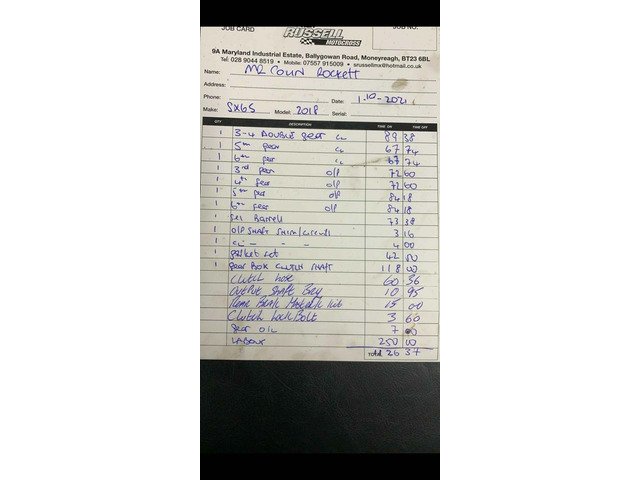 JOB CARD JOB NO.
RUSSELL
MOTOCROSS
9A Maryland Industrial Estate, Ballygowan Road, Moneyreagh, BT23 6BL
Tel: 028 9044 8519 • Mobile: 07557 915009 • srussellmx@hotmail.co.uk
Name: MR COLIN ROCKETT
Address:
Phone: Date: 1.10-2021
Make: SX65 Model: 2018 Serial:
QTY DESCRIPTION TIME ON TIME OFF
1 3-4 DOUBLE gear 89 38
1 5th gear 67 74
1 6th gear 67 74
1 3rd gear o/p 72 60
1 4th gear o/p 72 60
1 5th gear o/p 84 18
1 6th gear o/p 84 18
1 Sel Barrell 73 38
1 o/p SHAFT SHIM/circlip 3 16
1 - - 4 00
1 gasket set 42 00
1 gear BOX CLUTCH SHAFT 118 00
Clutch hose 60 36
OUTPUT SHAFT Brg 10 95
Rear Brake kit 15 00
Clutch Lock Bolt 3 60
gear oil 7
LABOUR 250 00
Total 26 37